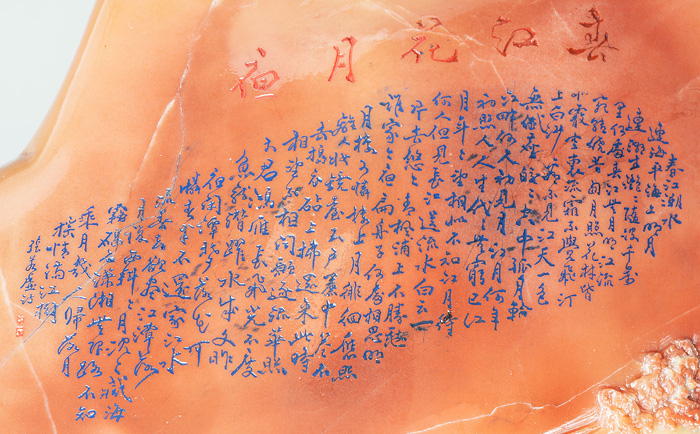 春江花月夜
春江潮水
連海平海上明月
共潮生灩灩隨波千萬
里何處春江無月明江流
宛轉繞芳甸月照花林皆
似霰空裏流霜不覺飛汀
上白沙看不見江天一色
無纖塵皎皎空中孤月輪
江畔何人初見月江月何年
初照人人生代代無窮已江
月年年望相似不知江月待
何人但見長江送流水白雲一
片去悠悠青楓浦上不勝愁
誰家今夜扁舟子何處相思明
月樓可憐樓上月徘徊應照
離人妝鏡臺玉戶簾中卷不
去搗衣砧上拂還來此時
相望不相聞願逐月華流照
君鴻雁長飛光不度
魚龍潛躍水成文昨
夜閑潭夢落花可
憐春半不還家江水
流春去欲盡江潭落
月復西斜斜月沉沉藏海
霧碣石瀟湘無限路不知
乘月幾人歸落月
搖情滿江樹
張若虛詩